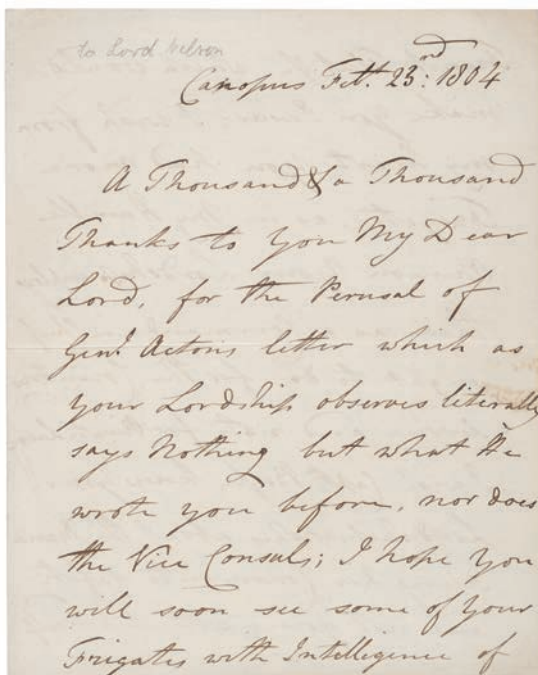 to Lord Nelson
Canopus Feb. 23rd: 1804
A Thousand & a Thousand
Thanks to you My Dear
Lord, for the Perusal of
Genl. Actons letter which as
your Lordship observes literally
says Nothing but what He
wrote you before, nor does
the Vice Consuls; I hope you
will soon see some of your
Frigates with Intelligence of